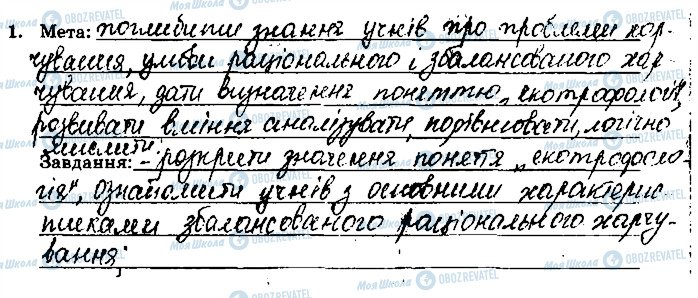 1. Мета: поглибити знання учнів про проблеми хар-
чування, умови раціонального і збалансованого хар-
чування, дати визначення поняттю „екотрофологія",
розвивати вміння аналізувати, порівнювати, логічно
мислити
Завдання: – розкрити значення поняття „екотрофоло-
гія", ознайомити учнів з основними характерис-
тиками збалансованого раціонального харчу-
вання;